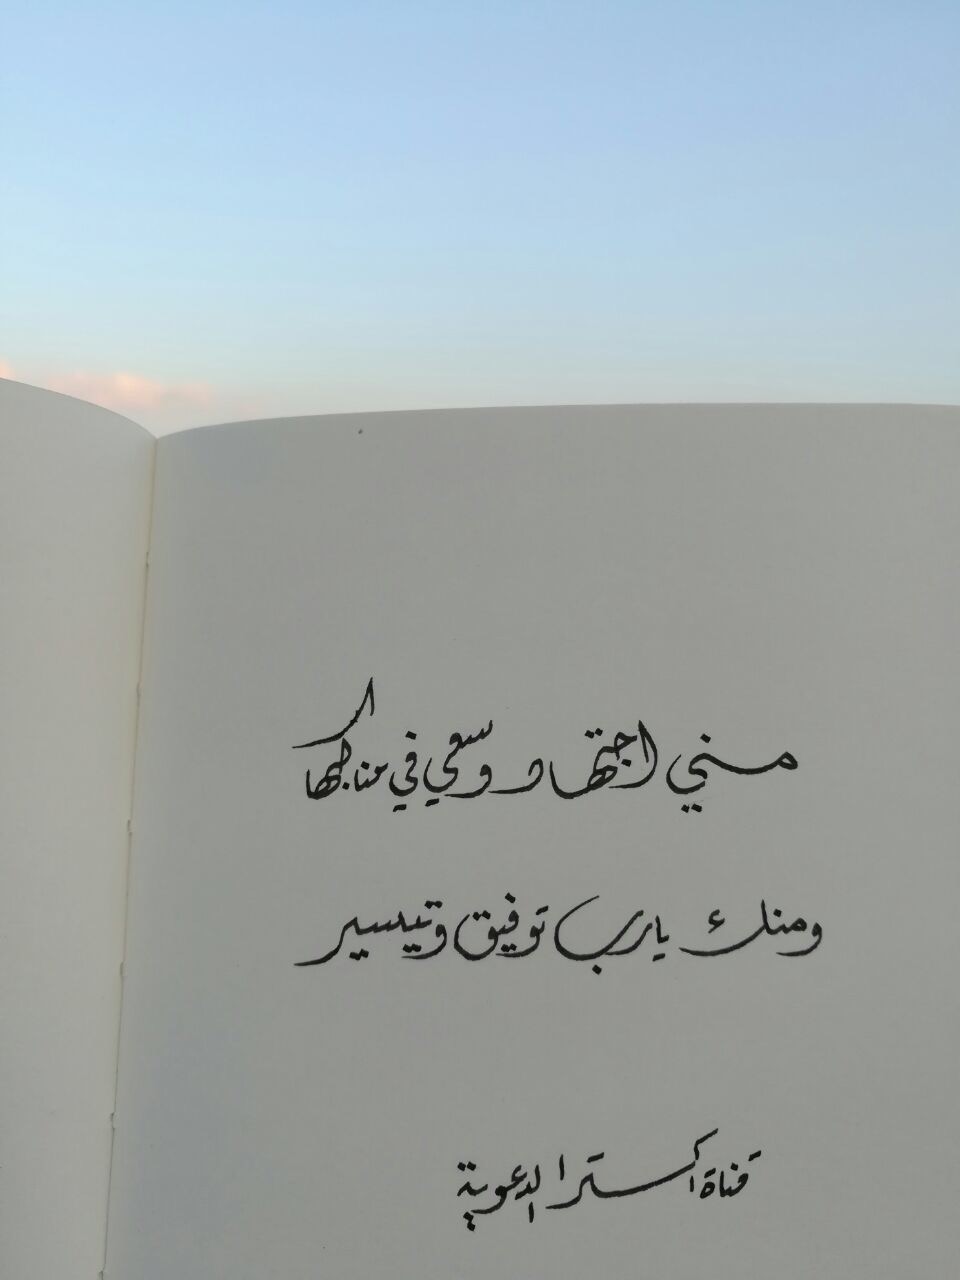 مني اجتهاد وسعي في مناكبها
ومنك يارب توفيق وتيسير
قناة اكسترا الدعوية